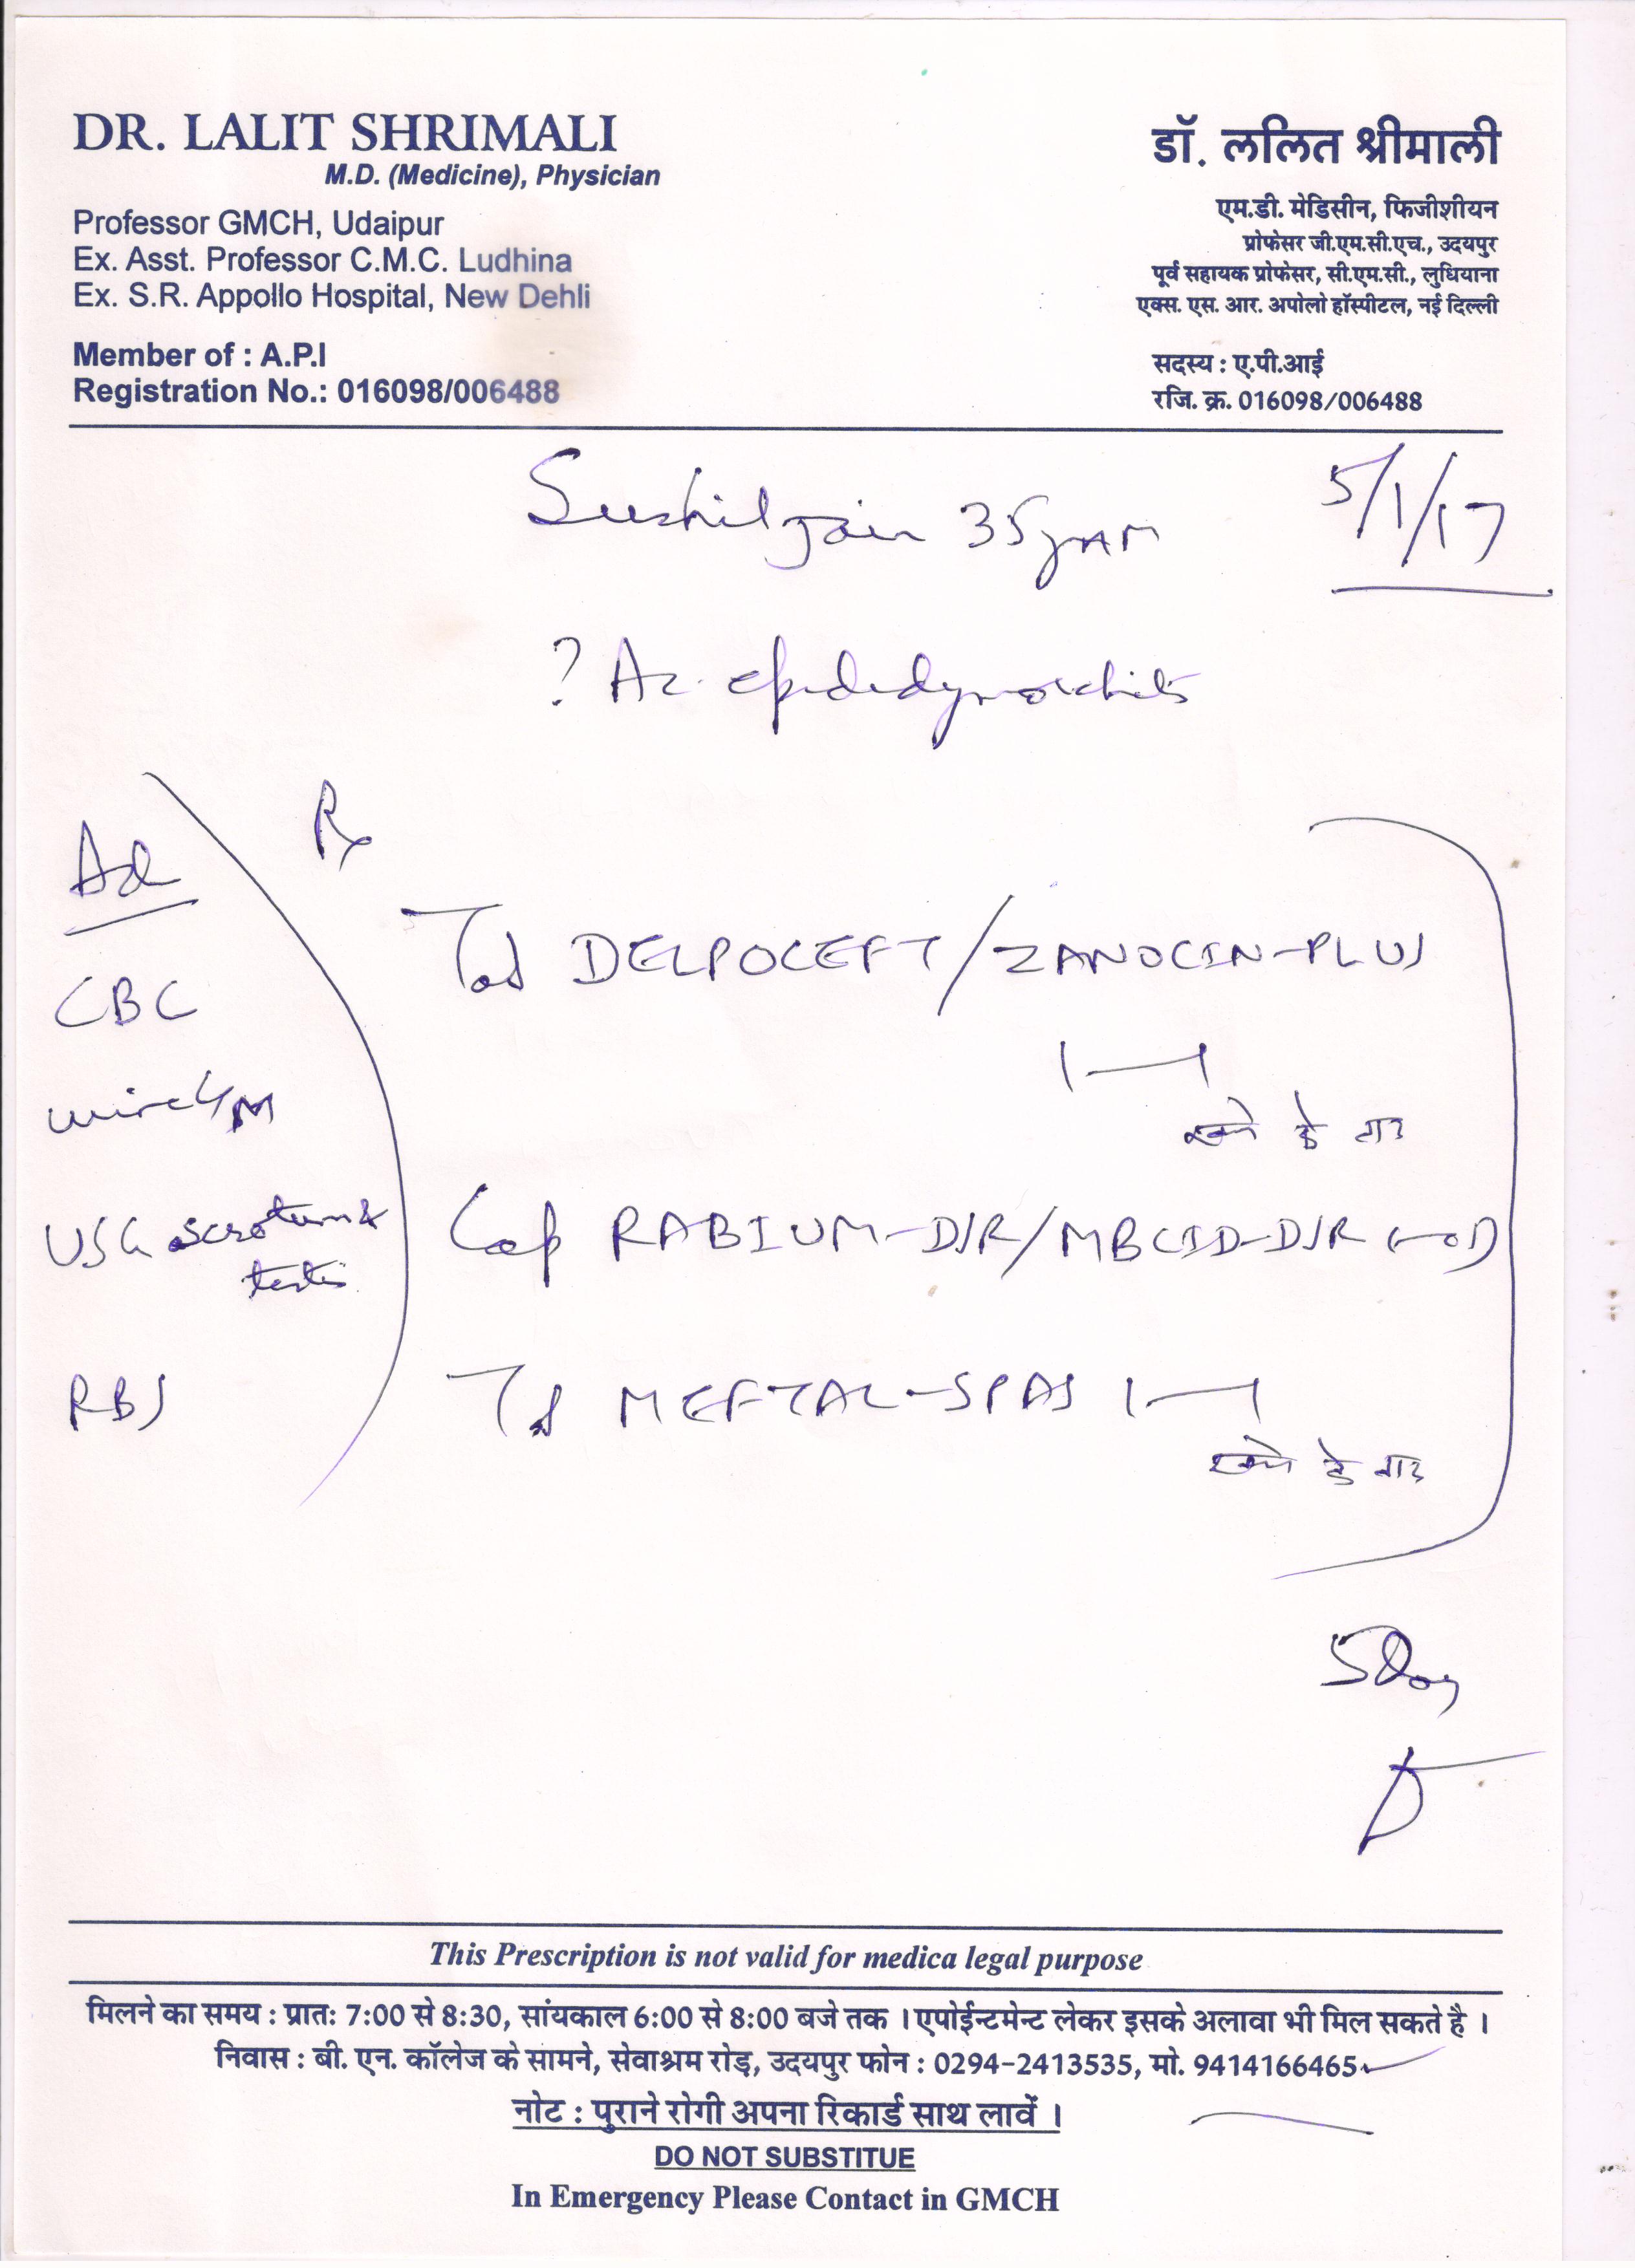 DR. LALIT SHRIMALI
M.D. (Medicine), Physician
Professor GMCH, Udaipur
Ex. Asst. Professor C.M.C. Ludhina
Ex. S.R. Appollo Hospital, New Dehli
Member of : A.P.I
Registration No.: 016098/006488
डॉ. ललित श्रीमाली
एम.डी. मेडिसीन, फिजीशीयन
प्रोफेसर जी.एम.सी.एच., उदयपुर
पूर्व सहायक प्रोफेसर, सी.एम.सी., लुधियाना
एक्स. एस. आर. अपोलो हॉस्पीटल, नई दिल्ली
सदस्य : ए.पी.आई
रजि. क्र. 016098/006488
Sushil Jain 35 5/1/17
? Ac. epidedymorchitis
Ad
CBC
urine
USG scrotum &
testis
RBS
Rx
Tab DELPOCEFT/ZANOCIN-PLUS
1—1
खाने के बाद
Cap RABIUM-DSR/MBCID-DSR
Tab MEFTAL-SPAS 1—1
खाने के बाद
5 day
This Prescription is not valid for medica legal purpose
मिलने का समय : प्रातः 7:00 से 8:30, सांयकाल 6:00 से 8:00 बजे तक । एपोईन्टमेन्ट लेकर इसके अलावा भी मिल सकते है ।
निवास : बी. एन. कॉलेज के सामने, सेवाश्रम रोड़, उदयपुर फोन : 0294-2413535, मो. 9414166465
नोट : पुराने रोगी अपना रिकार्ड साथ लावें ।
DO NOT SUBSTITUE
In Emergency Please Contact in GMCH